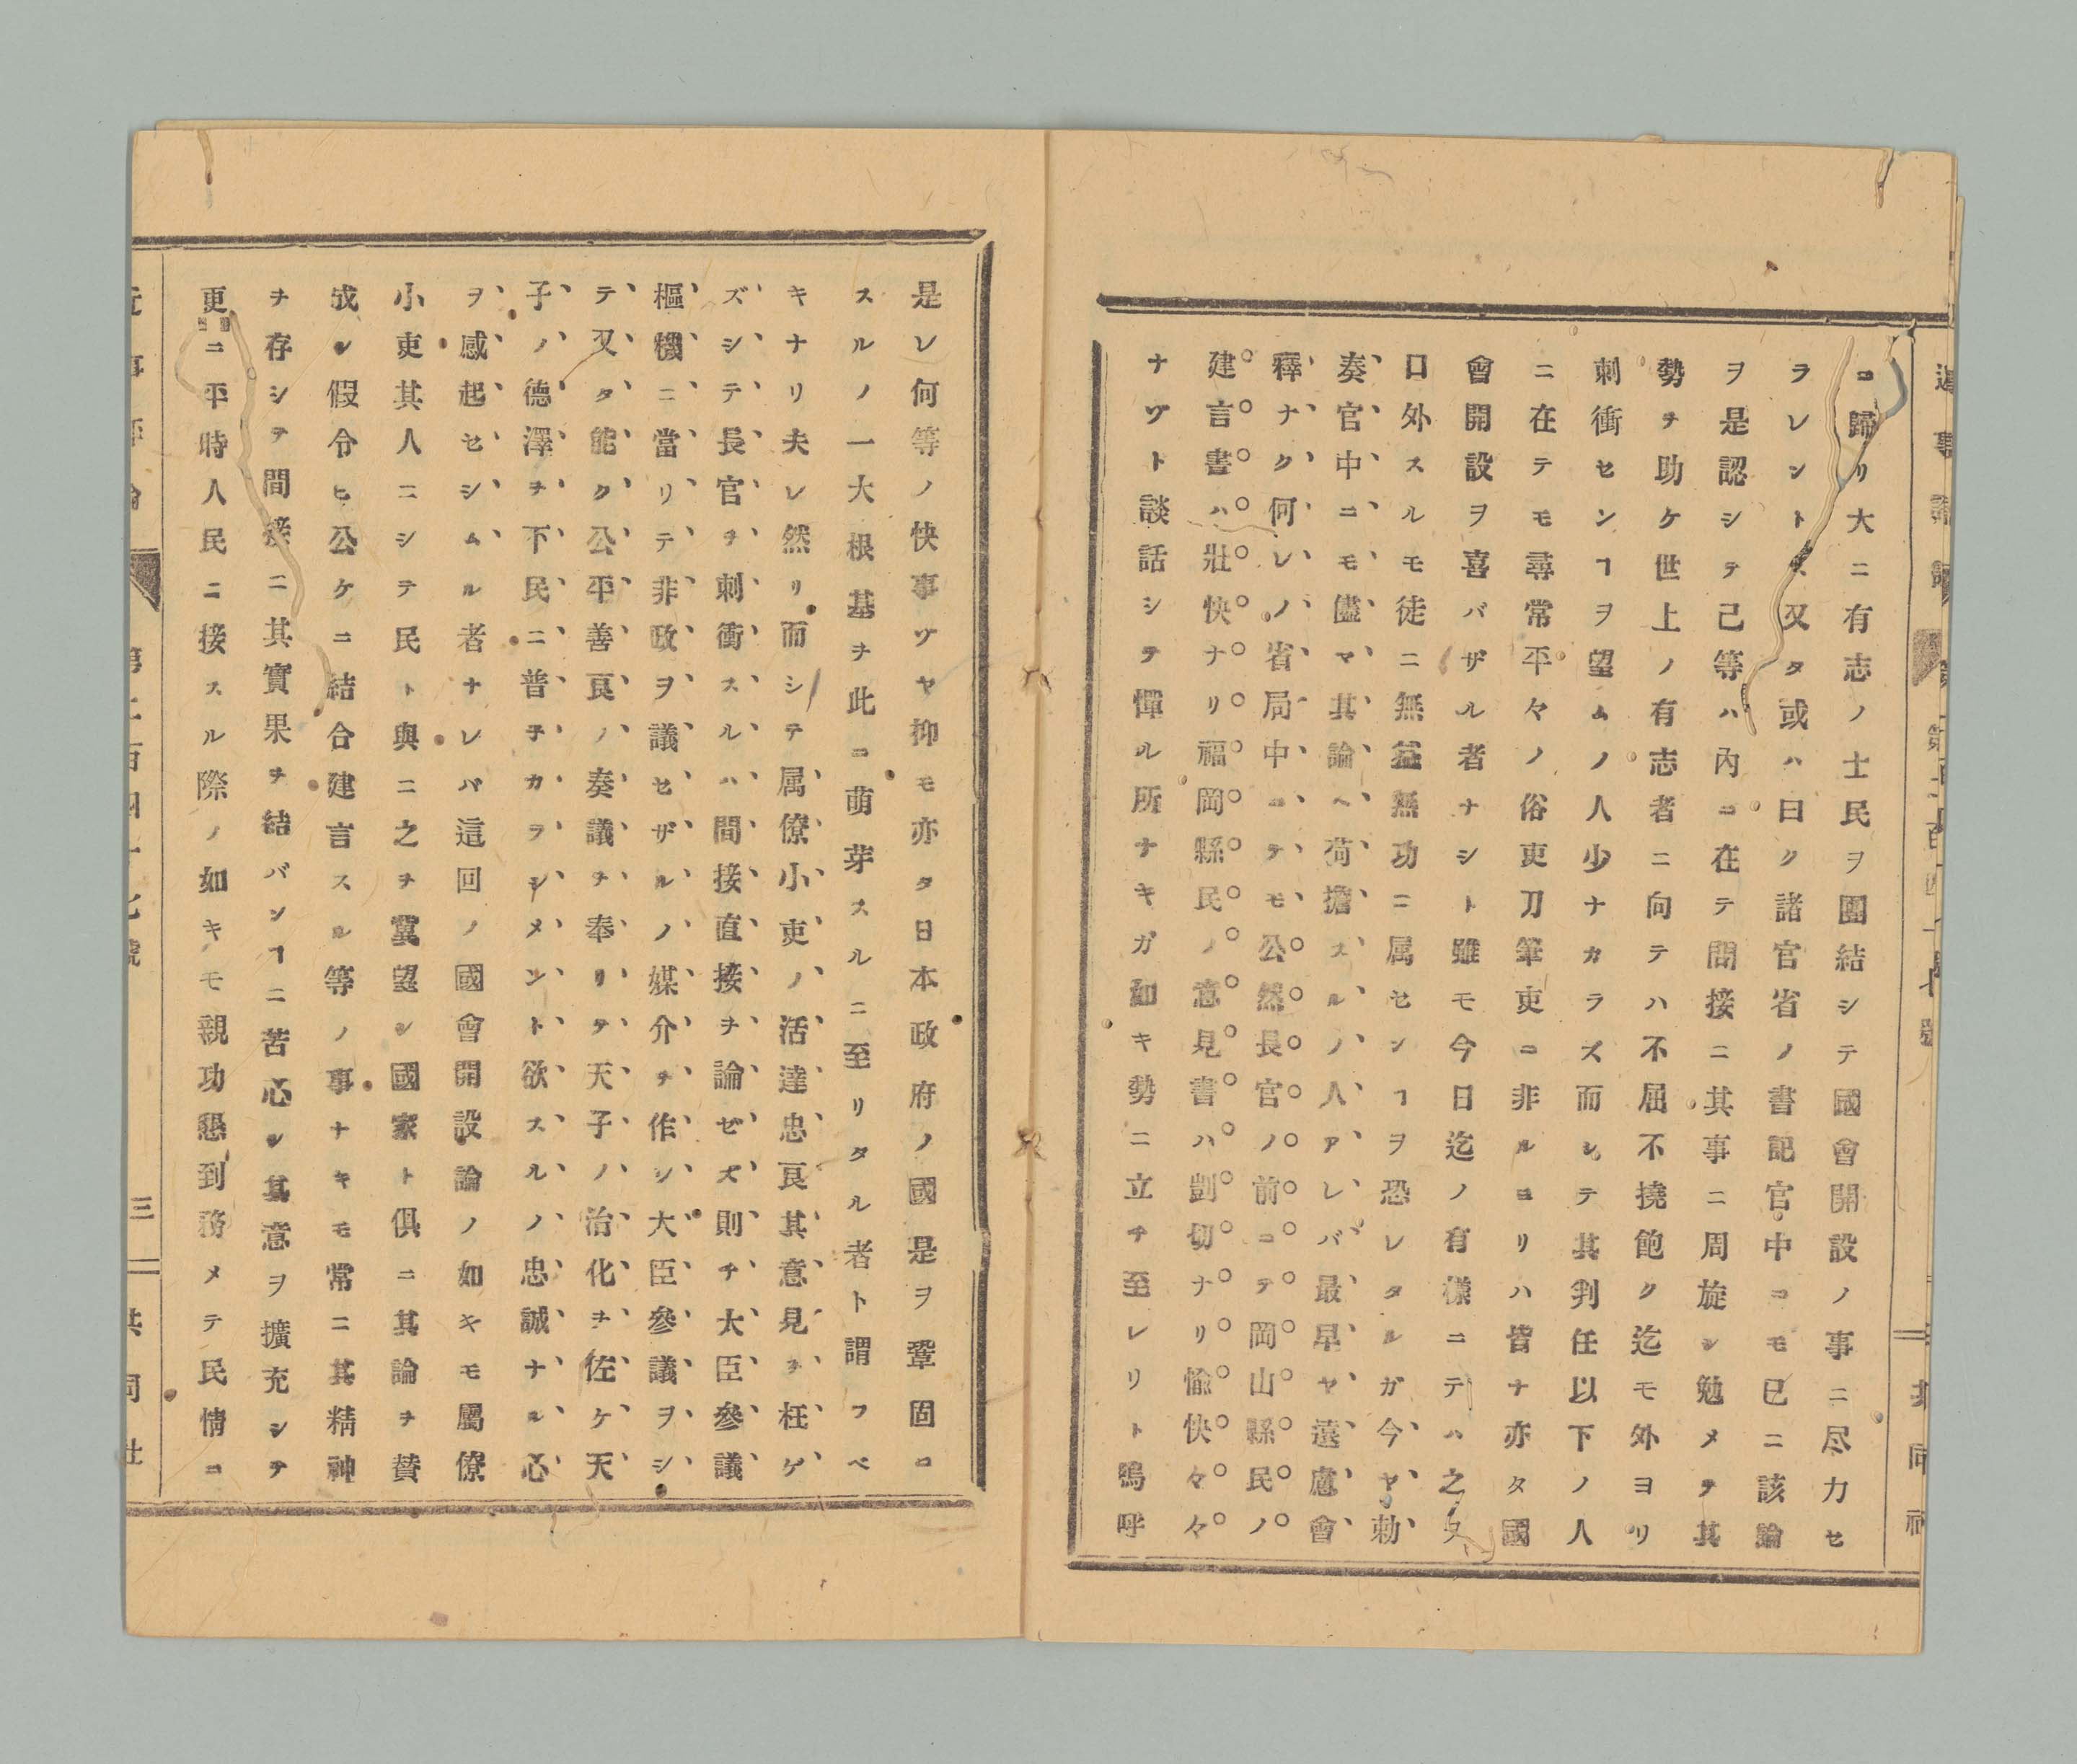 コ歸リ大ニ有志ノ士民ヲ團結シテ國會開設ノ事ニ尽力セ
ラレントス又タ或ハ曰ク諸官省ノ書記官中コモ已ニ該論
ヲ是認シテ己等ハ內コ在テ間接ニ其事ニ周旋シ勉メテ其
勢チ助ケ世上ノ有志者ニ向テハ不屈不撓飽ク迄モ外ヨリ
刺衝センヿヲ望ムノ人少ナカラズ而シテ其判任以下ノ人
ニ在テモ尋常平々ノ俗吏刀筆吏コ非ルヨリハ皆ナ亦タ國
會開設ヲ喜バザル者ナシト雖モ今日迄ノ有樣ニテハ之
口外スルモ徒ニ無益無功ニ属センヿヲ恐レタルガ今ヤ勅
奏官中ニモ儘マ其論ヘ荷擔スルノ人アレバ最早ヤ遠慮會
釋ナク何レノ省局中コテモ公然長官ノ前コテ岡山縣民ノ
建言書ハ壯快ナリ福岡縣民ノ意見書ハ剴切ナリ愉快々々
ナゾト談話シテ憚ル所ナキガ如キ勢ニ立チ至レリト嗚呼
是レ何等ノ快事ゾヤ抑モ亦タ日本政府ノ國是ヲ鞏固コ
スルノ一大根基ヲ此コ萌芽スルニ至リタル者ト謂フベ
キナリ夫レ然リ而シテ属僚小吏ノ活達忠良其意見ヲ枉ゲ
ズシテ長官チ刺衝スルハ間接直接ヲ論ゼズ則チ大臣參議
樞機ニ當リテ非政ヲ議セザルノ媒介チ作シ大臣參議ヲシ
テ又タ能ク公平善良ノ奏議チ奉リテ天子ノ治化ヲ佐ケ天
子ノ德澤チ下民ニ普子カラシメント欲スルノ忠誠ナル心
ヲ感起セシムル者ナレバ這回ノ國會開設論ノ如キモ屬僚
小吏其人ニシテ民ト與ニ之ヲ冀望シ國家ト俱ニ其論チ賛
成シ假令ヒ公ケニ結合建言スル等ノ事ナキモ常ニ其精神
チ存シテ間接ニ其實果チ結バンヿニ苦心シ其意ヲ擴充シテ
更ニ平時人民ニ接スル際ノ如キモ親功懇到務メテ民情コ
三